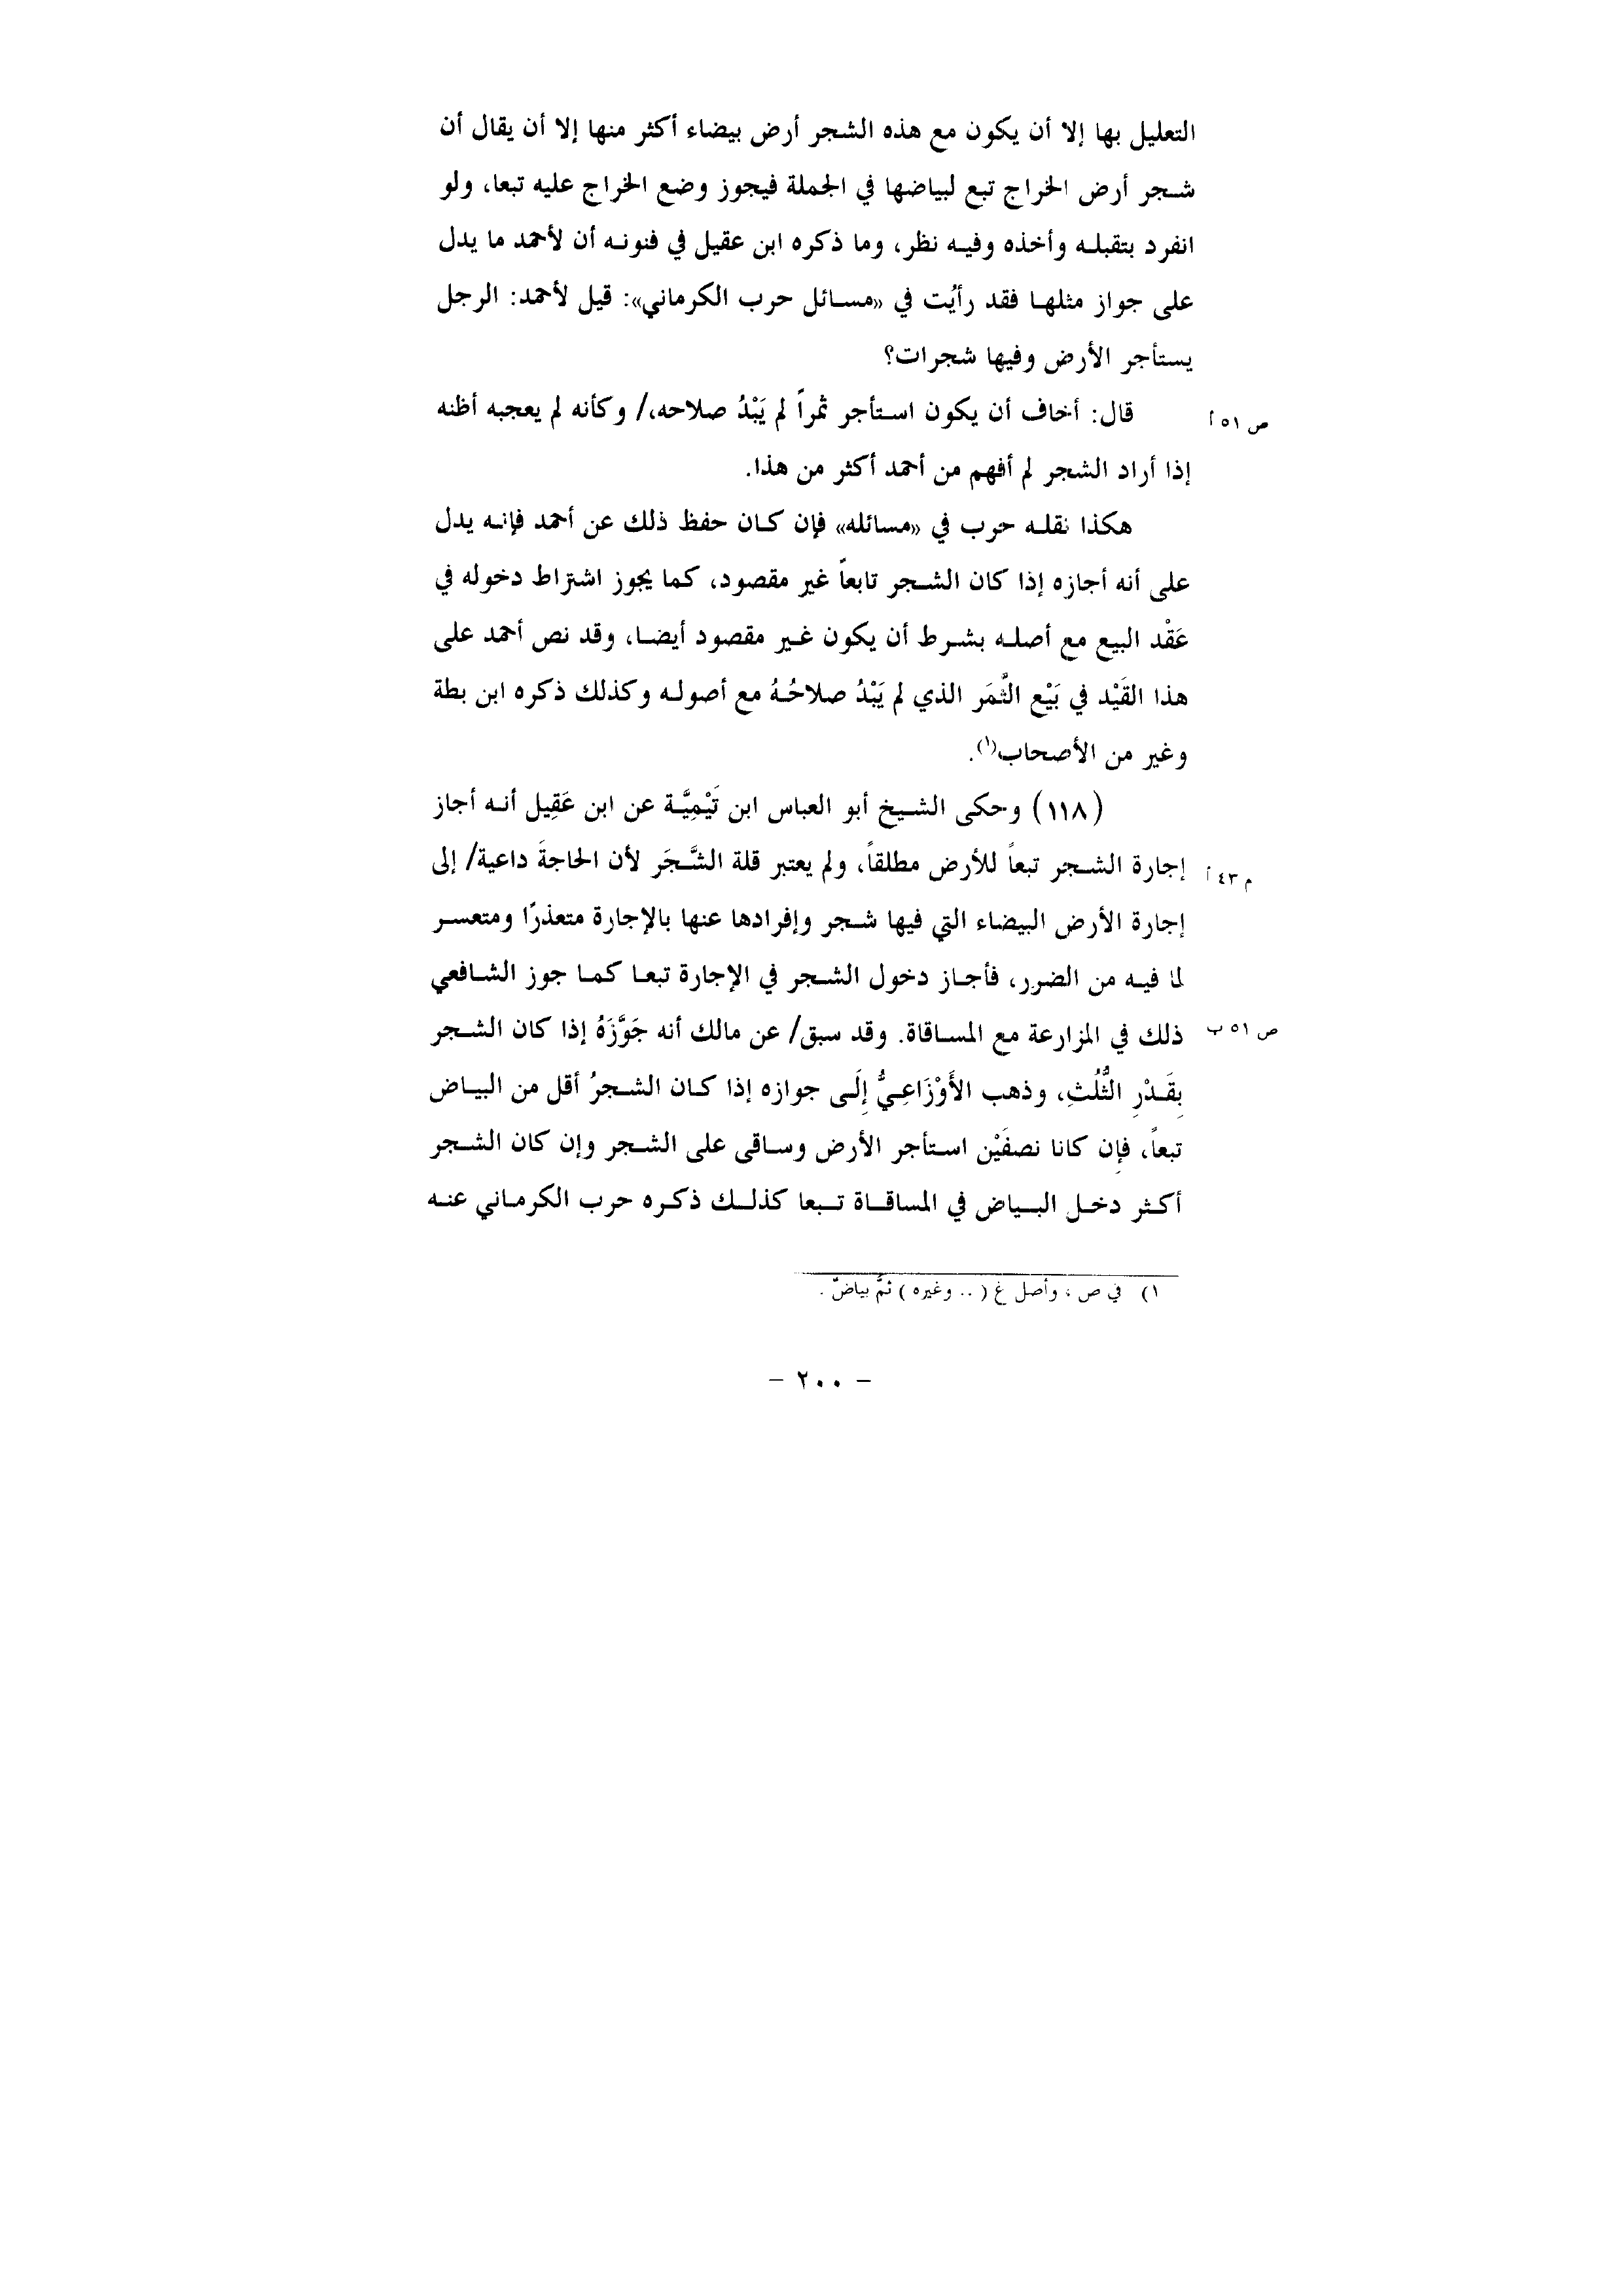 التعليل بها إلا أن يكون مع هذه الشجر أرض بيضاء أكثر منها إلا أن يقال أن
شجر أرض الخراج تبع لبياضها في الجملة فيجوز وضع الخراج عليه تبعا، ولو
انفرد بتقبله وأخذه وفيه نظر، وما ذكره ابن عقيل في فنونه أن لأحمد ما يدل
على جواز مثلها فقد رأيُت في «مسائل حرب الكرماني»: قيل لأحمد: الرجل
يستأجر الأرض وفيها شجرات؟
قال: أخاف أن يكون استأجر ثمراً لم يَبْدُ صلاحه،/ وكأنه لم يعجبه أظنه
ص ٥١ أ
إذا أراد الشجر لم أفهم من أحمد أكثر من هذا.
هكذا نقله حرب في «مسائله» فإن كان حفظ ذلك عن أحمد فإنه يدل
على أنه أجازه إذا كان الشجر تابعاً غير مقصود، كما يجوز اشتراط دخوله في
عَقْد البيع مع أصله بشرط أن يكون غير مقصود أيضا، وقد نص أحمد على
هذا القَيْد في بَيْع الثَّمَر الذي لم يَبْدُ صلاحُهُ مع أصوله وكذلك ذكره ابن بطة
وغير من الأصحاب(١).
(١١٨) وحكى الشيخ أبو العباس ابن تَيْمِيَّة عن ابن عَقِيل أنه أجاز
إجارة الشجر تبعاً للأرض مطلقاً، ولم يعتبر قلة الشَّجَر لأن الحاجةَ داعية/ إلى
م ٤٣ أ
إجارة الأرض البيضاء التي فيها شجر وإفرادها عنها بالإجارة متعذرًا ومتعسر
لما فيه من الضرر، فأجاز دخول الشجر في الإجارة تبعا كما جوز الشافعي
ذلك في المزارعة مع المساقاة. وقد سبق/ عن مالك أنه جَوَّزَهُ إذا كان الشجر
ص ٥١ ب
بِقَدْرِ الثُّلُثِ، وذهب الأَوْزَاعِيُّ إِلَى جوازه إذا كان الشجرُ أقل من البياض
تبعاً، فإِن كانا نصفَيْن استأجر الأرض وساقى على الشجر وإن كان الشجر
أكثر دخل البياض في المساقاة تبعا كذلك ذكره حرب الكرماني عنه
١) في ص ، وأصل غ ( .. وغيره ) ثمُّ بياضٌ .
- ٢٠٠ -